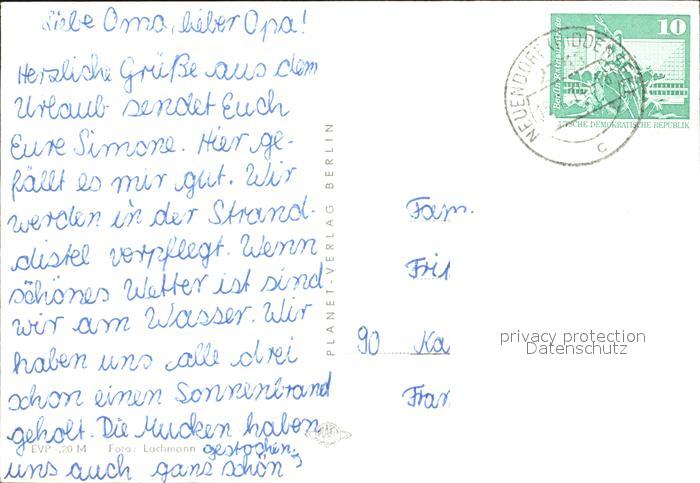 Liebe Oma, lieber Opa!
Herzliche Grüße aus dem
Urlaub sendet Euch
Eure Simone. Hier ge-
fällt es mir gut. Wir
werden in der Strand-
distel verpflegt. Wenn
schönes Wetter ist sind
wir am Wasser. Wir
haben uns alle drei
schon einen Sonnenbrand
geholt. Die Mucken haben
uns auch ganz schön
gestochen.
EVP -,20 M Foto: Lachmann
PLANET-VERLAG BERLIN
10
NEUENDORF (HIDDENSEE)
c
DEUTSCHE DEMOKRATISCHE REPUBLIK
Fam.
90 Ka
privacy protection
Datenschutz